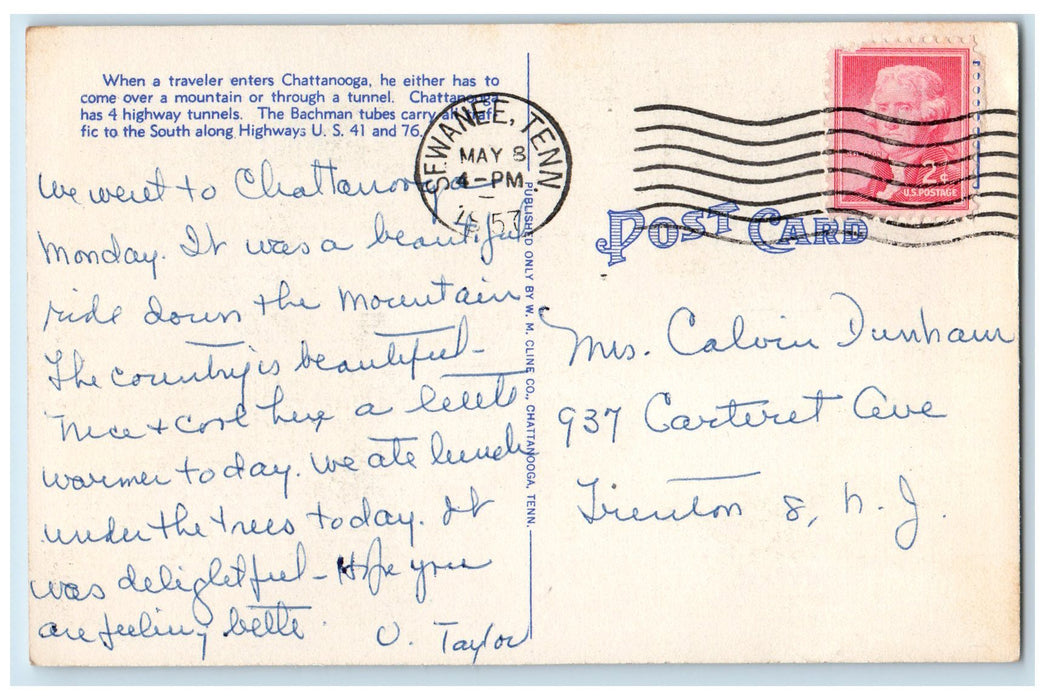 When a traveler enters Chattanooga, he either has to
come over a mountain or through a tunnel. Chattanooga
has 4 highway tunnels. The Bachman tubes carry all traf-
fic to the South along Highways U. S. 41 and 76.
SEWANEE, TENN.
MAY 8
4-PM
1957
2¢
U.S. POSTAGE
POST CARD
PUBLISHED ONLY BY W. M. CLINE CO., CHATTANOOGA, TENN.
We went to Chattanooga
Monday. It was a beautiful
ride down the Mountain
The country is beautiful -
Nice + cool here a little
warmer today. We ate lunch
under the trees today. It
was delightful - Hope you
are feeling better.
O. Taylor
Mrs. Calvin Dunham
937 Carteret Ave
Trenton 8, N. J.